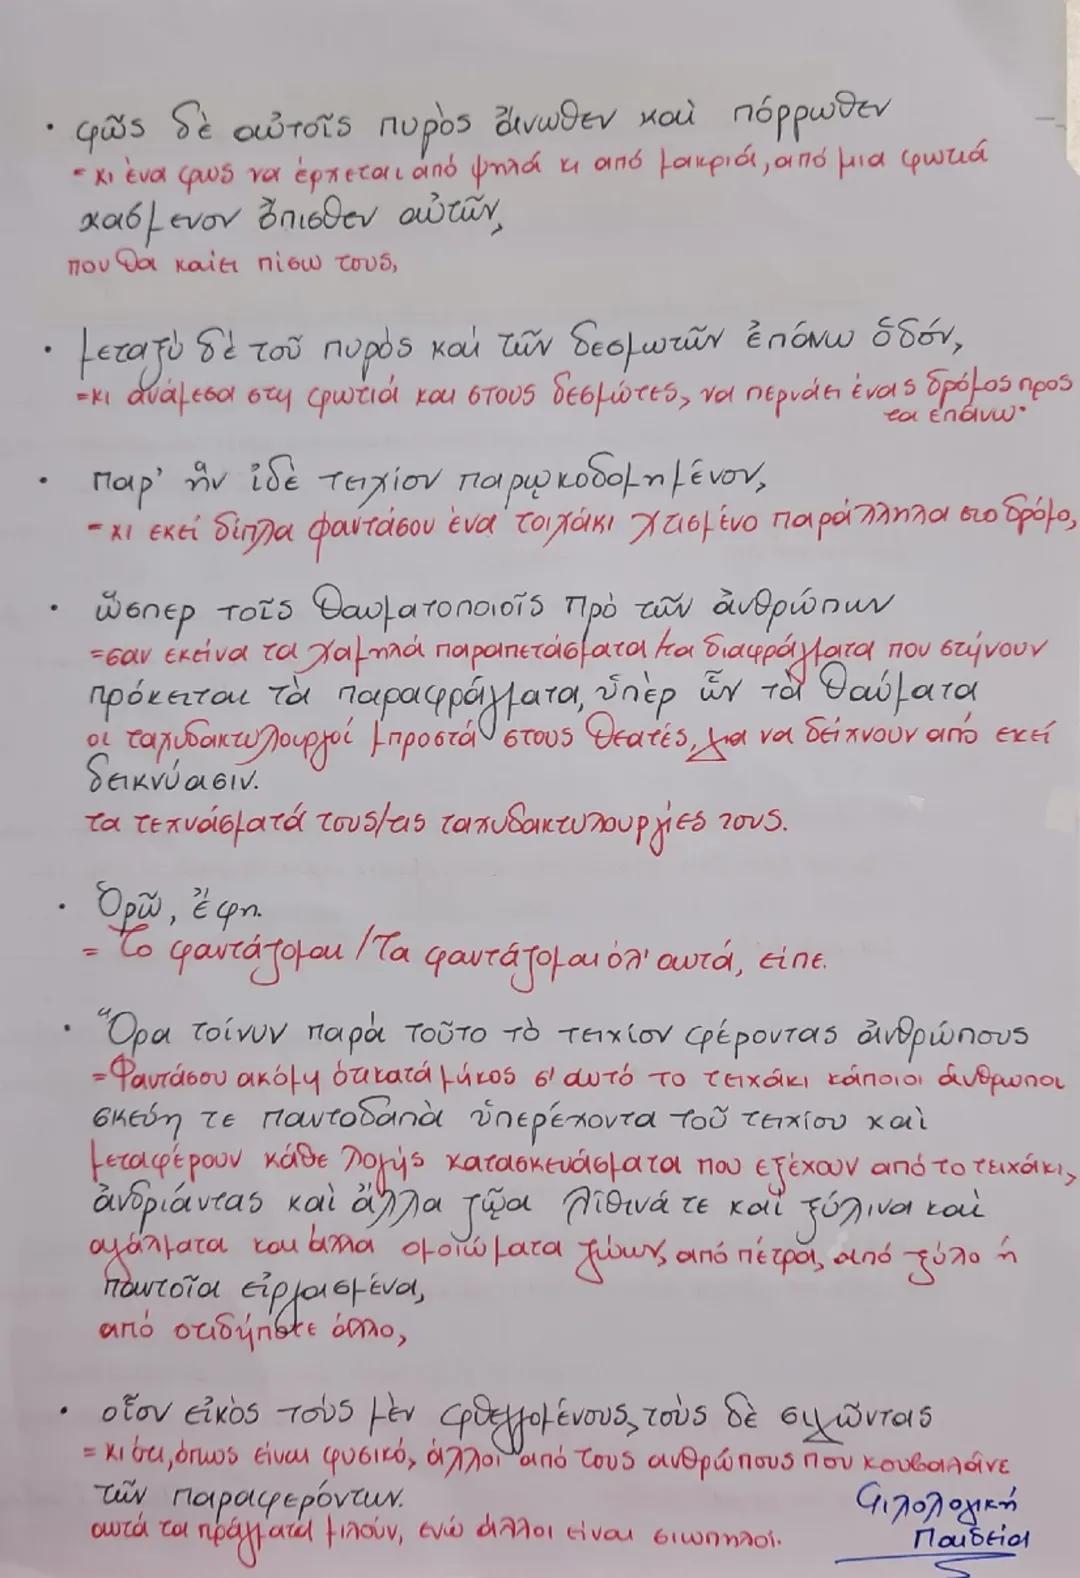 • φῶς δὲ αὐτοῖς πυρὸς ἄνωθεν καὶ πόρρωθεν
= κι ένα φως να έρχεται από ψηλά κι από μακριά, από μια φωτιά
καόμενον ὄπισθεν αὐτῶν,
που θα καίει πίσω τους,
• μεταξὺ δὲ τοῦ πυρὸς καὶ τῶν δεσμωτῶν ἐπάνω ὁδόν,
=κι ανάμεσα στη φωτιά και στους δεσμώτες, να περνάει ένας δρόμος προς
τα επάνω·
• παρ' ἣν ἰδὲ τειχίον παρῳκοδομημένον,
= κι εκεί δίπλα φαντάσου ένα τοιχάκι χτισμένο παράλληλα στο δρόμο,
• ὥσπερ τοῖς θαυματοποιοῖς πρὸ τῶν ἀνθρώπων
=σαν εκείνα τα χαμηλά παραπετάσματα/τα διαφράγματα που στήνουν
πρόκειται τὰ παραφράγματα, ὑπὲρ ὧν τὰ θαύματα
οι ταχυδακτυλουργοί μπροστά στους θεατές, για να δείχνουν από εκεί
δεικνύασιν.
τα τεχνάσματά τους/τις ταχυδακτυλουργίες τους.
• Ὁρῶ, ἔφη.
= Το φαντάζομαι /Τα φαντάζομαι όλ' αυτά, είπε.
• Ὅρα τοίνυν παρὰ τοῦτο τὸ τειχίον φέροντας ἀνθρώπους
=Φαντάσου ακόμη ότι κατά μήκος σ' αυτό το τειχάκι κάποιοι άνθρωποι
σκεύη τε παντοδαπὰ ὑπερέχοντα τοῦ τειχίου καὶ
μεταφέρουν κάθε λογής κατασκευάσματα που εξέχουν από το τειχάκι,
ἀνδριάντας καὶ ἄλλα ζῷα λίθινά τε καὶ ξύλινα καὶ
αγάλματα και άλλα ομοιώματα ζώων, από πέτρα, από ξύλο ή
παντοῖα εἰργασμένα,
από οτιδήποτε άλλο,
• οἷον εἰκὸς τοὺς μὲν φθεγγομένους, τοὺς δὲ σιγῶντας
= κι ότι, όπως είναι φυσικό, άλλοι από τους ανθρώπους που κουβαλάνε
τῶν παραφερόντων.
αυτά τα πράγματα μιλούν, ενώ άλλοι είναι σιωπηλοί.
Φιλολογική
Παιδεία